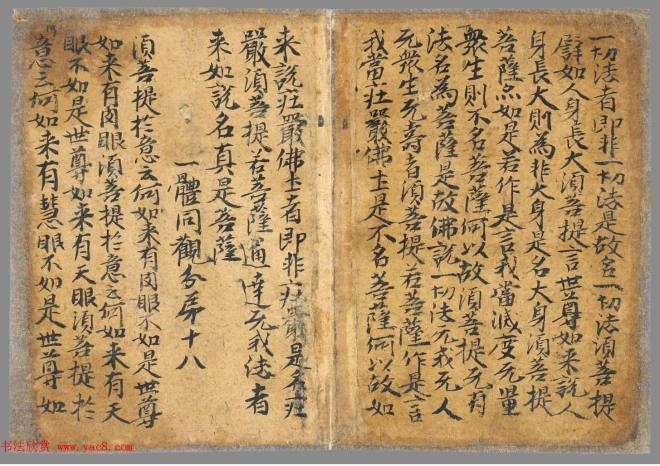 一切法者即非一切法是故名一切法須菩提
譬如人身長大須菩提言世尊如来說人
身長大則為非大身是名大身須菩提
菩薩亦如是若作是言我當滅度无量
衆生則不名菩薩何以故須菩提无有
法名為菩薩是故佛說一切法无我无人
无衆生无壽者須菩提若菩薩作是言
我當莊嚴佛土是不名菩薩何以故如
来說莊嚴佛土者即非莊嚴是名莊
嚴須菩提若菩薩通達无我法者
来如說名真是菩薩
一體同觀分第十八
須菩提於意云何如来有肉眼不如是世尊
如来有肉眼須菩提於意云何如来有天
眼不如是世尊如来有天眼須菩提於
意云何如来有慧眼不如是世尊如
书法欣赏 www.yac8.com